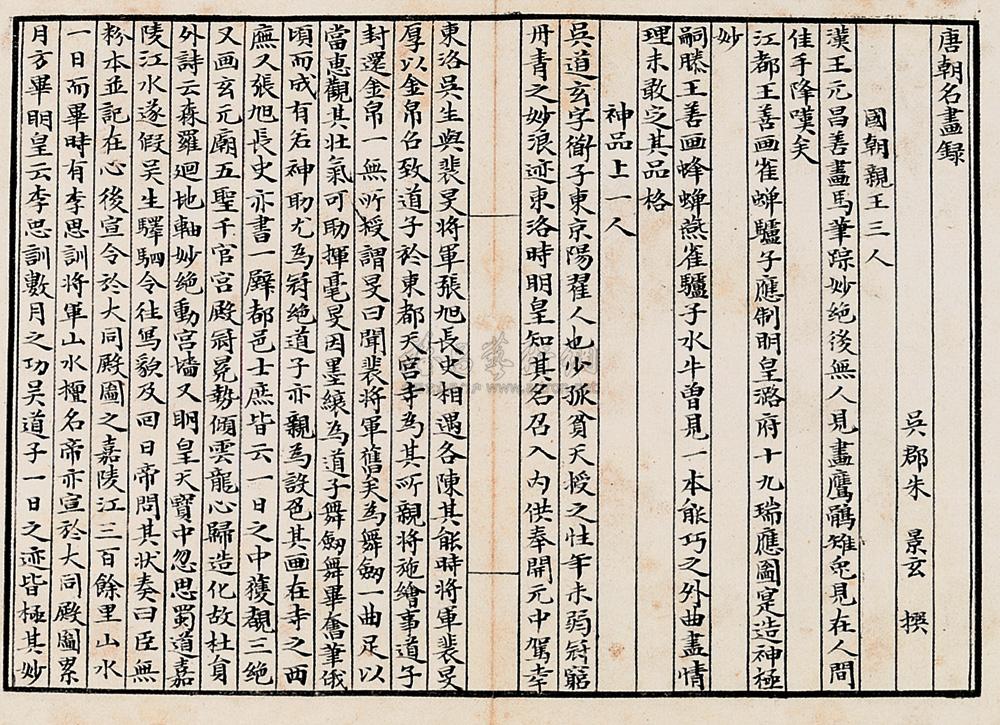 唐朝名畫録
吳郡朱景玄撰
國朝親王三人
漢王元昌善畫馬筆踪妙絕後無人見畫鷹鶻雉兔見在人間
佳手降嘆矣
江都王善画雀蝉驢子應制明皇潞府十九瑞應圖寔造神極
妙
嗣滕王善画蜂蝉燕雀驢子水牛曽見一本能巧之外曲盡情
理未敢定其品格
神品上一人
吳道玄字衜子東京陽翟人也少孤貧天授之性年未弱冠窮
丹青之妙浪迹東洛時明皇知其名召入内供奉開元中駕幸
東洛吳生與裴旻將軍張旭長史相遇各陳其能時將軍裴旻
厚以金帛召致道子於東都天宫寺為其所親將施繪事道子
封還金帛一無所授謂旻曰聞裴將軍舊矣為舞劒一曲足以
當惠觀其壮氣可助揮毫旻因墨縗為道子舞劒舞畢奮筆俄
頃而成有若神助尤為冠絕道子亦親為設色其画在寺之西
廡又張旭長史亦書一壁都邑士庶皆云一日之中獲覩三絕
又画玄元廟五聖千官宫殿冠冕勢傾雲龍心歸造化故杜員
外詩云森羅迴地軸妙絕動宫墻又明皇天寶中忽思蜀道嘉
陵江水遂假吳生驛駟令往寫貌及回日帝問其狀奏曰臣無
粉本並記在心後宣令於大同殿圖之嘉陵江三百餘里山水
一日而畢時有李思訓將軍山水擅名帝亦宣於大同殿圖累
月方畢明皇云李思訓數月之功吳道子一日之迹皆極其妙